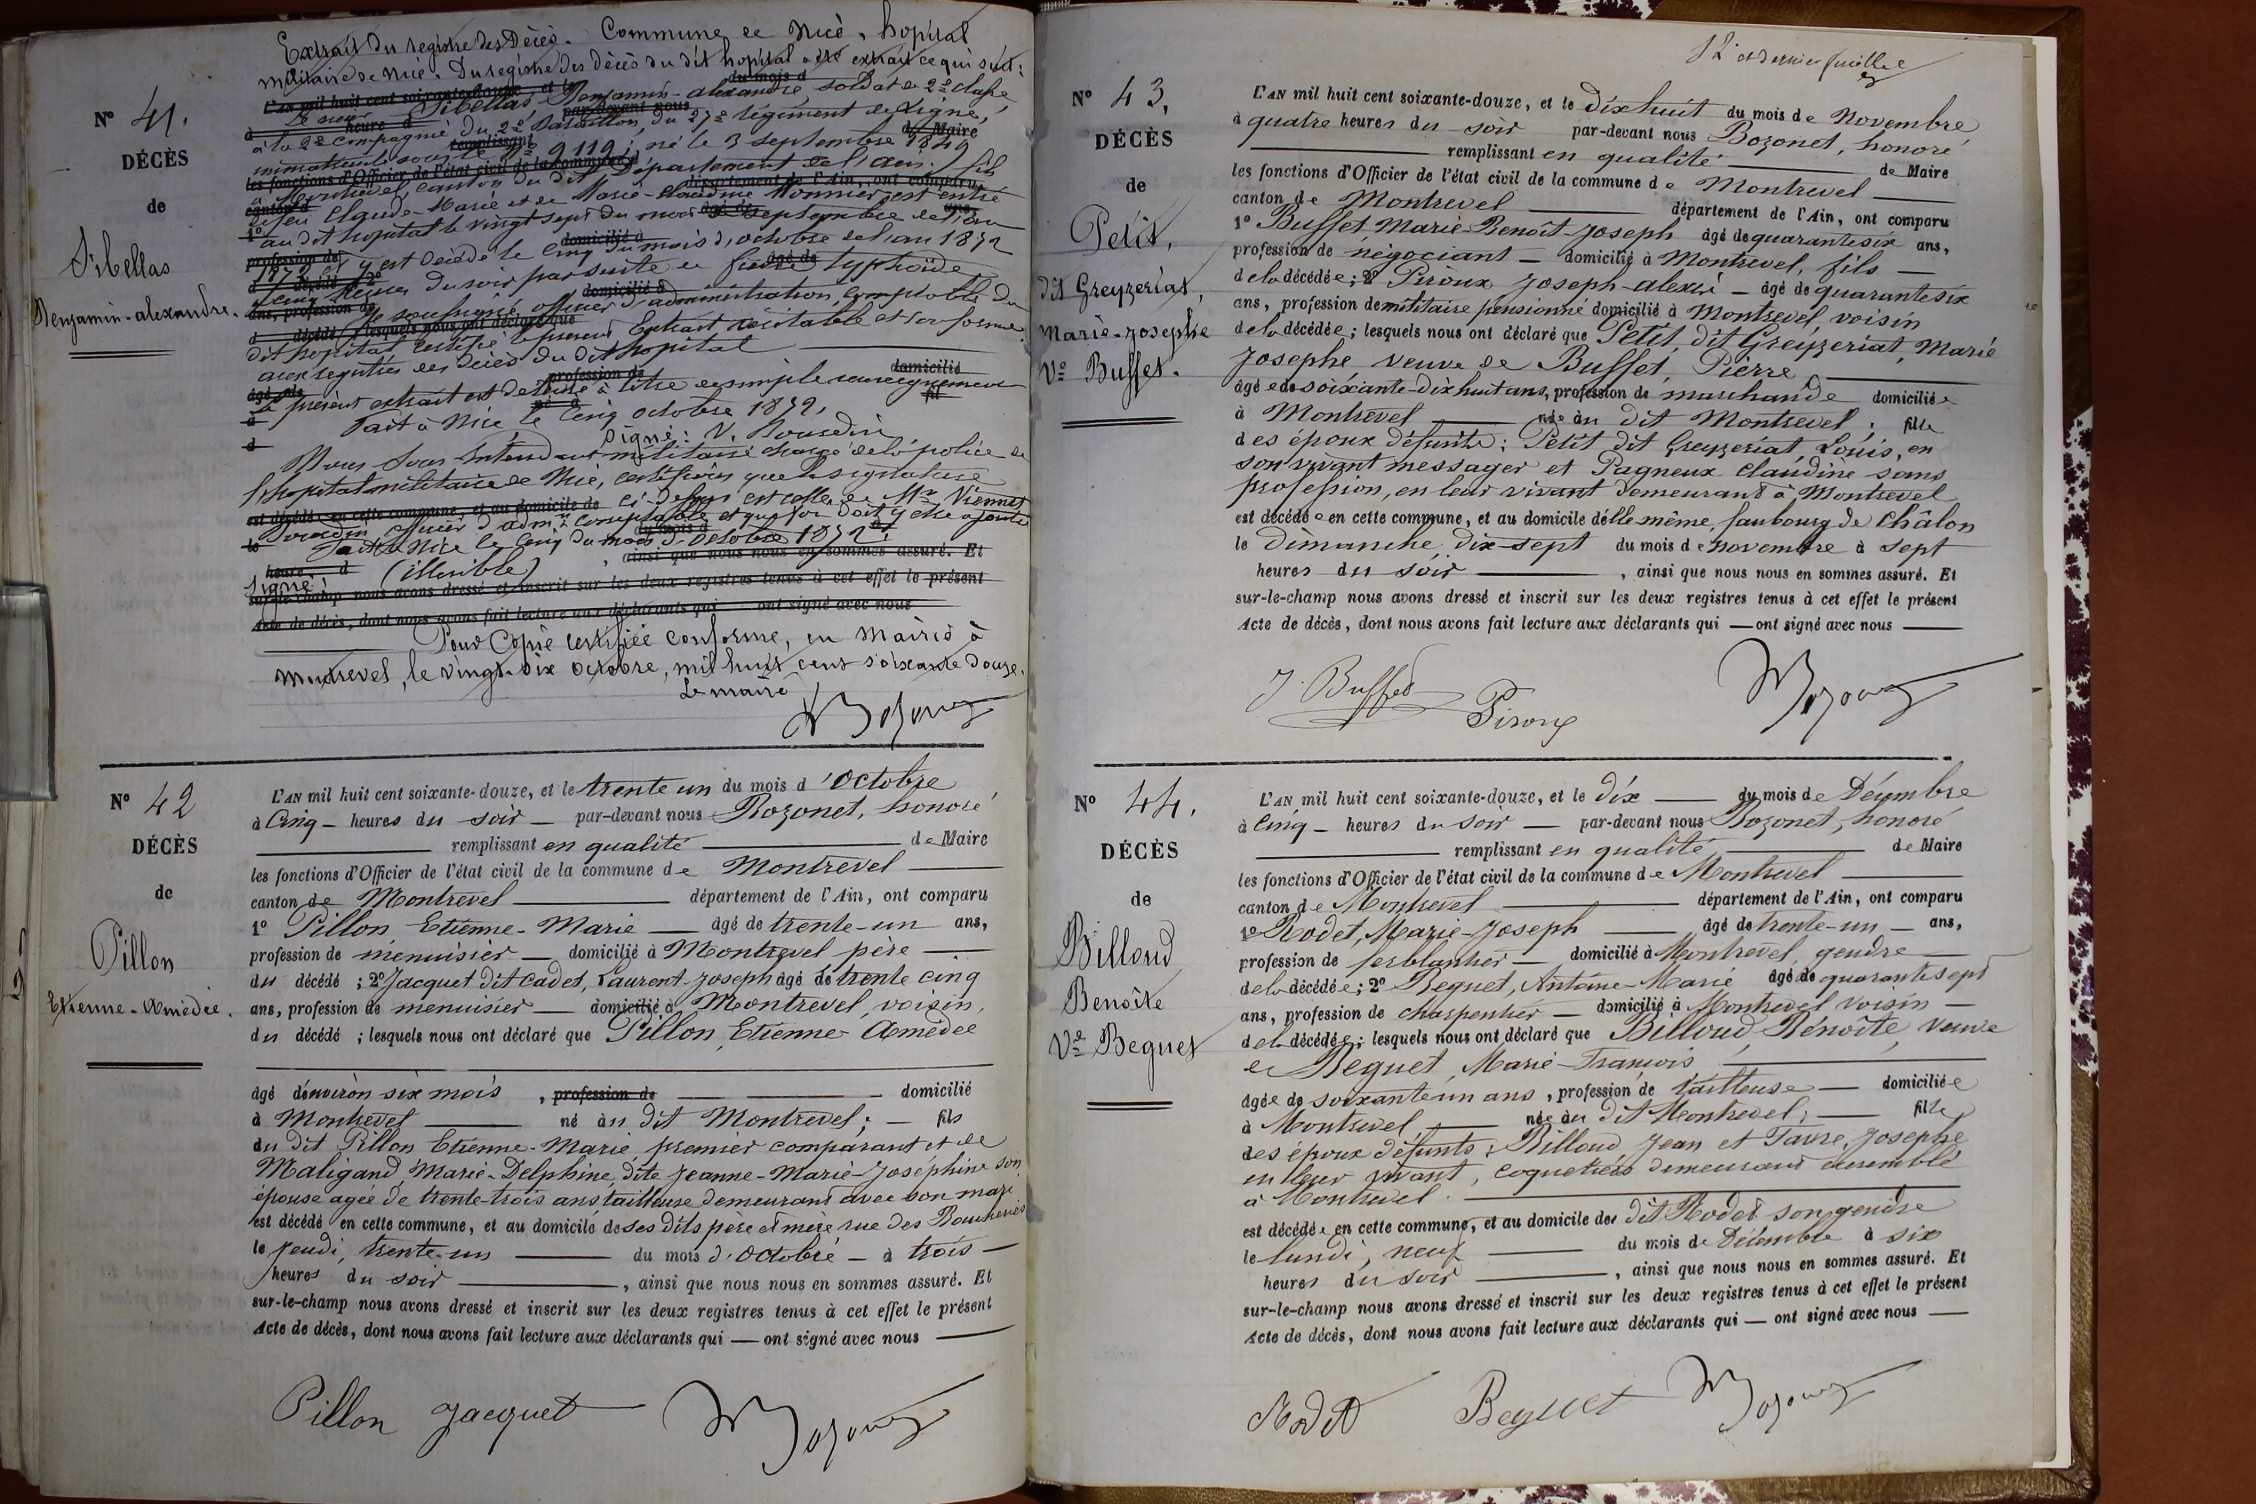 Extrait du registre des Décès. Commune de Nice, hopital
militaire de Nice. Du registre des décès du dit hopital a été extrait ce qui suit:
N° 41.
DÉCÈS
de
Sibellas
Benjamin-alexandre.
Le sieur Sibellas Benjamin-alexandre, soldat de 2e classe
à la 2e Compagnie du 2e Bataillon, du 27e régiment de Ligne,
immatriculé sous le N° 9119; né le 3 septembre 1849
à Montrevel, canton du dit, Département de l'ain; fils
de feu Claude-Marie et de Marie-Claudine Monnier est entré
au dit hopital le vingt sept du mois de septembre de l'an
1872 et y est décédé le cinq du mois d'octobre de l'an 1872
à cinq heures du soir par suite de fièvre typhoïde
Je soussigné officier d'administration, comptable du
dit hopital certifie le présent Extrait véritable et conforme
aux registres des décès du dit hopital
Le présent extrait est délivré à titre de simple renseignement
Fait à Nice le cinq octobre 1872.
Signé: V. Bourdin
Nous Sous Intendant militaire chargé de la police de
l'hopital militaire de Nice, certifions que la signature
ci-dessus est celle de Mr Viennet
Bourdin officier d'admon comptable et que foi doit y être ajoutée
Fait à Nice le cinq du mois d'octobre 1872.
Signé: (illisible)
Pour Copie certifiée conforme, en Mairie à
Montrevel, le vingt-six octobre, mil huit cent soixante douze.
Le maire
Bozonet
N° 42
DÉCÈS
de
Pillon
Etienne-Amédée.
L'AN mil huit cent soixante-douze, et le trente un du mois d'Octobre
à Cinq heures du soir par-devant nous Bozonet, honoré
remplissant en qualité de Maire
les fonctions d'Officier de l'état civil de la commune de Montrevel
canton de Montrevel département de l'Ain, ont comparu
1° Pillon Etienne-Marie âgé de trente-un ans,
profession de menuisier domicilié à Montrevel père
du décédé; 2° Jacquet dit Cadet, Laurent-Joseph âgé de trente cinq
ans, profession de menuisier domicilié à Montrevel, voisin,
du décédé; lesquels nous ont déclaré que Pillon, Etienne Amédée
âgé d'environ six mois, profession de domicilié
à Montrevel né au dit Montrevel; fils
du dit Pillon Etienne-Marie, premier comparant et de
Maligand, Marie-Delphine, dite Jeanne-Marie-Joséphine son
épouse agée de trente-trois ans tailleuse demeurant avec son mari
est décédé en cette commune, et au domicile de ses dits père et mère rue des Boucheries
le jeudi, trente-un du mois d'Octobre à trois
heures du soir, ainsi que nous nous en sommes assuré. Et
sur-le-champ nous avons dressé et inscrit sur les deux registres tenus à cet effet le présent
Acte de décès, dont nous avons fait lecture aux déclarants qui ont signé avec nous
Pillon Jacquet Bozonet
12e et dernier feuillet
N° 43,
DÉCÈS
de
Petit,
dit Greyzeriat,
Marie-Josephe
Ve Buffet.
L'AN mil huit cent soixante-douze, et le dix huit du mois de Novembre
à quatre heures du soir par-devant nous Bozonet, honoré
remplissant en qualité de Maire
les fonctions d'Officier de l'état civil de la commune de Montrevel
canton de Montrevel département de l'Ain, ont comparu
1° Buffet Marie-Benoit-Joseph âgé de quarante six ans,
profession de négociant domicilié à Montrevel, fils
de la décédée; 2° Piroux Joseph-alexis âgé de quarante six
ans, profession de militaire pensionné domicilié à Montrevel, voisin
de la décédée; lesquels nous ont déclaré que Petit, dit Greyzeriat, Marie
Josephe veuve de Buffet, Pierre
âgée de soixante-dix huit ans, profession de marchande domiciliée
à Montrevel née au dit Montrevel; fille
des époux défunts: Petit dit Greyzeriat, Louis, en
son vivant messager et Pagneux Claudine sans
profession, en leur vivant demeurant à Montrevel
est décédée en cette commune, et au domicile d'elle même, faubourg de Châlon
le Dimanche, dix-sept du mois de novembre à sept
heures du soir, ainsi que nous nous en sommes assuré. Et
sur-le-champ nous avons dressé et inscrit sur les deux registres tenus à cet effet le présent
Acte de décès, dont nous avons fait lecture aux déclarants qui ont signé avec nous
J. Buffet Piroux Bozonet
N° 44.
DÉCÈS
de
Billoud
Benoîte
Ve Beguet
L'AN mil huit cent soixante-douze, et le dix du mois de Décembre
à Cinq heures du soir par-devant nous Bozonet, honoré
remplissant en qualité de Maire
les fonctions d'Officier de l'état civil de la commune de Montrevel
canton de Montrevel département de l'Ain, ont comparu
1° Rodet, Marie-Joseph âgé de trente-un ans,
profession de ferblantier domicilié à Montrevel, gendre
de la décédée; 2° Beguet, Antoine-Marie âgé de quarante sept
ans, profession de charpentier domicilié à Montrevel voisin
de la décédée; lesquels nous ont déclaré que Billoud, Bénoîte, veuve
de Beguet, Marie-François
âgée de soixante un ans, profession de tailleuse domiciliée
à Montrevel née au dit Montrevel; fille
des époux défunts: Billoud Jean et Favre, Josephe
en leur vivant, coquetiers demeurant ensemble
à Montrevel.
est décédée en cette commune, et au domicile des dit Rodet son gendre
le lundi, neuf du mois de Décembre à six
heures du soir, ainsi que nous nous en sommes assuré. Et
sur-le-champ nous avons dressé et inscrit sur les deux registres tenus à cet effet le présent
Acte de décès, dont nous avons fait lecture aux déclarants qui ont signé avec nous
Rodet Beguet Bozonet